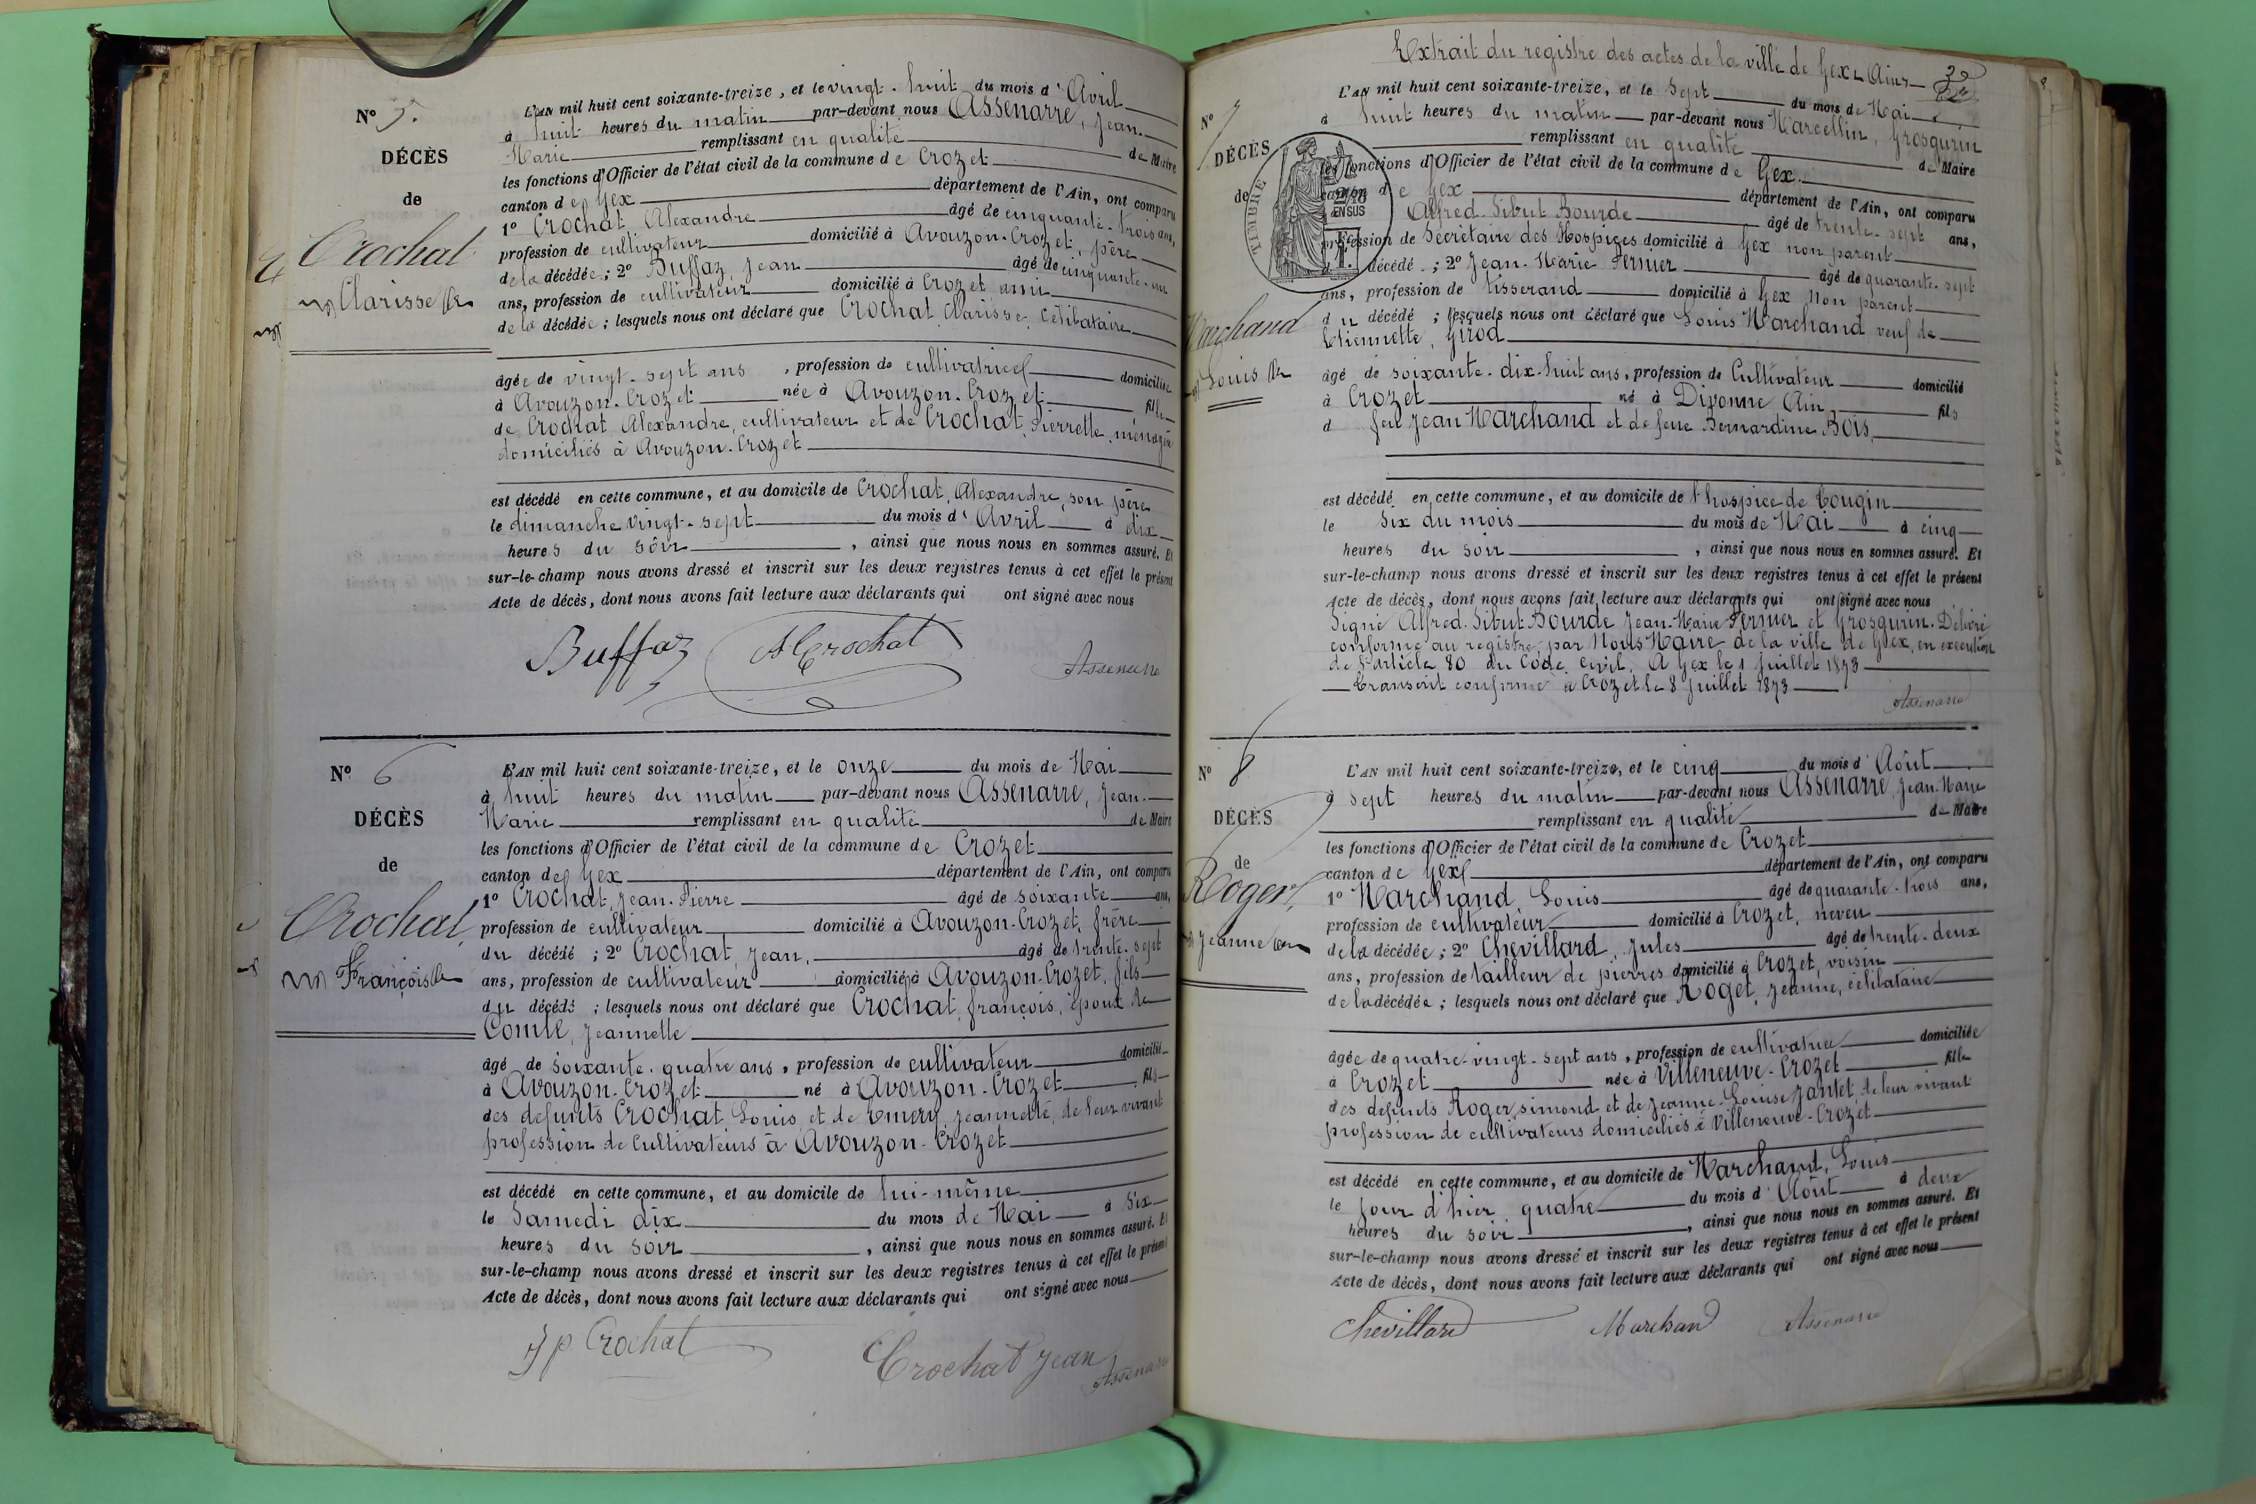 Nº 5.
DÉCÈS
de
Crochat
Clarisse
L'AN mil huit cent soixante-treize, et le vingt-huit du mois d'Avril
à huit heures du matin par-devant nous Assenarre, Jean-
Marie remplissant en qualité de Maire
les fonctions d'Officier de l'état civil de la commune de Crozet
canton de Gex département de l'Ain, ont comparu
1º Crochat Alexandre âgé de cinquante-trois ans,
profession de cultivateur domicilié à Avouzon-Crozet, père
de la décédée; 2º Buffaz, Jean âgé de cinquante-un
ans, profession de cultivateur domicilié à Crozet ami
de la décédée; lesquels nous ont déclaré que Crochat, Clarisse, célibataire
âgée de vingt-sept ans, profession de cultivatrice domiciliée
à Avouzon-Crozet née à Avouzon-Crozet fille
de Crochat Alexandre, cultivateur et de Crochat, Pierrette, ménagère
domiciliés à Avouzon-Crozet
est décédé en cette commune, et au domicile de Crochat, Alexandre, son père
le dimanche vingt-sept du mois d'Avril à dix
heures du soir, ainsi que nous nous en sommes assuré. Et
sur-le-champ nous avons dressé et inscrit sur les deux registres tenus à cet effet le présent
Acte de décès, dont nous avons fait lecture aux déclarants qui ont signé avec nous
Buffaz A Crochat Assenarre
Nº 6
DÉCÈS
de
Crochat,
François
L'AN mil huit cent soixante-treize, et le onze du mois de Mai
à huit heures du matin par-devant nous Assenarre, Jean-
Marie remplissant en qualité de Maire
les fonctions d'Officier de l'état civil de la commune de Crozet
canton de Gex département de l'Ain, ont comparu
1º Crochat, Jean-Pierre âgé de soixante ans,
profession de cultivateur domicilié à Avouzon-Crozet, frère
du décédé; 2º Crochat, Jean, âgé de trente-sept
ans, profession de cultivateur domicilié à Avouzon-Crozet, fils
du décédé; lesquels nous ont déclaré que Crochat, françois, époux de
Comte, Jeannette
âgé de soixante-quatre ans, profession de cultivateur domicilié
à Avouzon-Crozet né à Avouzon-Crozet fils
des défunts Crochat, Louis, et de Emery, Jeannette, de leur vivant
profession de Cultivateurs à Avouzon-Crozet
est décédé en cette commune, et au domicile de lui-même
le Samedi dix du mois de Mai à six
heures du soir, ainsi que nous nous en sommes assuré. Et
sur-le-champ nous avons dressé et inscrit sur les deux registres tenus à cet effet le présent
Acte de décès, dont nous avons fait lecture aux déclarants qui ont signé avec nous
J P Crochat Crochat Jean Assenarre
Extrait du registre des actes de la ville de Gex Ain
Nº 7
DÉCÈS
de
TIMBRE
EN SUS
Marchand
Louis
L'AN mil huit cent soixante-treize, et le Sept du mois de Mai
à huit heures du matin par-devant nous Marcellin, Grosgurin
remplissant en qualité de Maire
les fonctions d'Officier de l'état civil de la commune de Gex
canton de Gex département de l'Ain, ont comparu
Alfred-Sibut Bourde âgé de trente-sept ans,
profession de Secrétaire des Hospices domicilié à Gex non parent
décédé; 2º Jean-Marie Pernier âgé de quarante-sept
ans, profession de tisserand domicilié à Gex non parent
du décédé; lesquels nous ont déclaré que Louis Marchand veuf de
Etiennette, Girod
âgé de soixante-dix-huit ans, profession de Cultivateur domicilié
à Crozet né à Divonne Ain fils
d feu Jean Marchand et de feue Bernardine Bois
est décédé en cette commune, et au domicile de l'hospice de Tougin
le Six du mois du mois de Mai à cinq
heures du soir, ainsi que nous nous en sommes assuré. Et
sur-le-champ nous avons dressé et inscrit sur les deux registres tenus à cet effet le présent
Acte de décès, dont nous avons fait lecture aux déclarants qui ont signé avec nous
Signé Alfred-Sibut-Bourde Jean-Marie Pernier et Grosgurin. Délivré
conforme au registre, par Nous Maire de la ville de Gex, en exécution
de l'article 80 du Code civil. A Gex le 1 Juillet 1873
Transcrit conforme à Crozet le 8 Juillet 1873
Assenarre
Nº 8
DÉCÈS
de
Roger,
Jeanne
L'AN mil huit cent soixante-treize, et le cinq du mois d'Août
à sept heures du matin par-devant nous Assenarre, Jean-Marie
remplissant en qualité de Maire
les fonctions d'Officier de l'état civil de la commune de Crozet
canton de Gex département de l'Ain, ont comparu
1º Marchand, Louis âgé de quarante-trois ans,
profession de cultivateur domicilié à Crozet, neveu
de la décédée; 2º Chevillard, Jules âgé de trente-deux
ans, profession de tailleur de pierres domicilié à Crozet, voisin
de la décédée; lesquels nous ont déclaré que Roget, Jeanne, célibataire
âgée de quatre-vingt-sept ans, profession de cultivatrice domiciliée
à Crozet née à Villeneuve-Crozet fille
des défunts Roger, simond et de Jeanne-Louise Jantet, de leur vivant
profession de cultivateurs domiciliés à Villeneuve-Crozet
est décédé en cette commune, et au domicile de Marchand, Louis
le Jour d'hier quatre du mois d'Août à deux
heures du soir, ainsi que nous nous en sommes assuré. Et
sur-le-champ nous avons dressé et inscrit sur les deux registres tenus à cet effet le présent
Acte de décès, dont nous avons fait lecture aux déclarants qui ont signé avec nous
Chevillard Marchand Assenarre